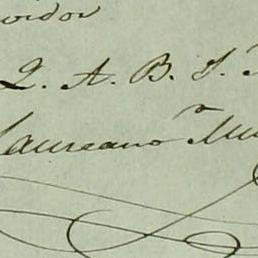 vidor
Q. A. B. S.
Laureano Mu